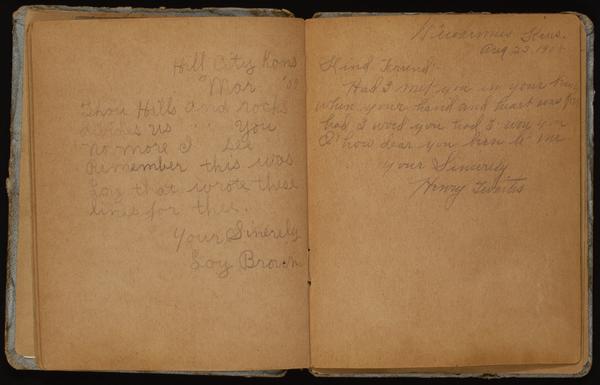 Hill City Kans
Mar '09
Thou Hills and rocks
divides us You
no more I See
Remember this was
Loy that wrote these
lines for thee.
Your Sinerely
Loy Brown
Kans.
Aug 23, 190
Kind Friend
Had I met you in your
when your hand and heart was
had I woed you had I won you
O how dear you been to me
your Sincerely
Henry